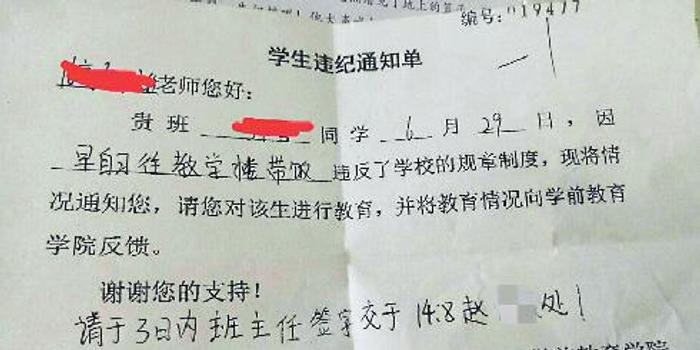 编号:019477
学生违纪通知单
老师您好:
贵班 同学 6 月 29 日,因
早自习往教学楼带饭 违反了学校的规章制度,现将情
况通知您,请您对该生进行教育,并将教育情况向学前教育
学院反馈。
谢谢您的支持!
请于3日内班主任签字交于 148赵 处!
学前教育学院